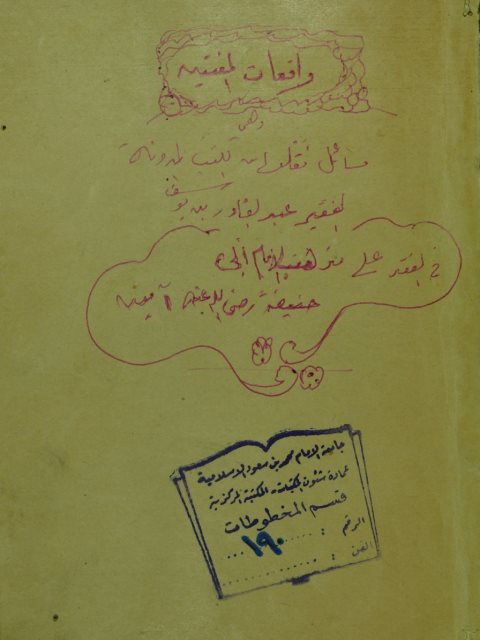 واقعات المفتيين
وهى
مسائل نقلها من الكتب المدونة
الفقير عبد القادر بن يوسف
في الفقه على مذهب الإمام أبي
حنيفة رضى الله عنه آمين
جامعة الامام محمد بن سعود الاسلامية
عمادة شئون المكتبات - المكتبة المركزية
قسم المخطوطات
الرقم : ١٩٠
الفن :